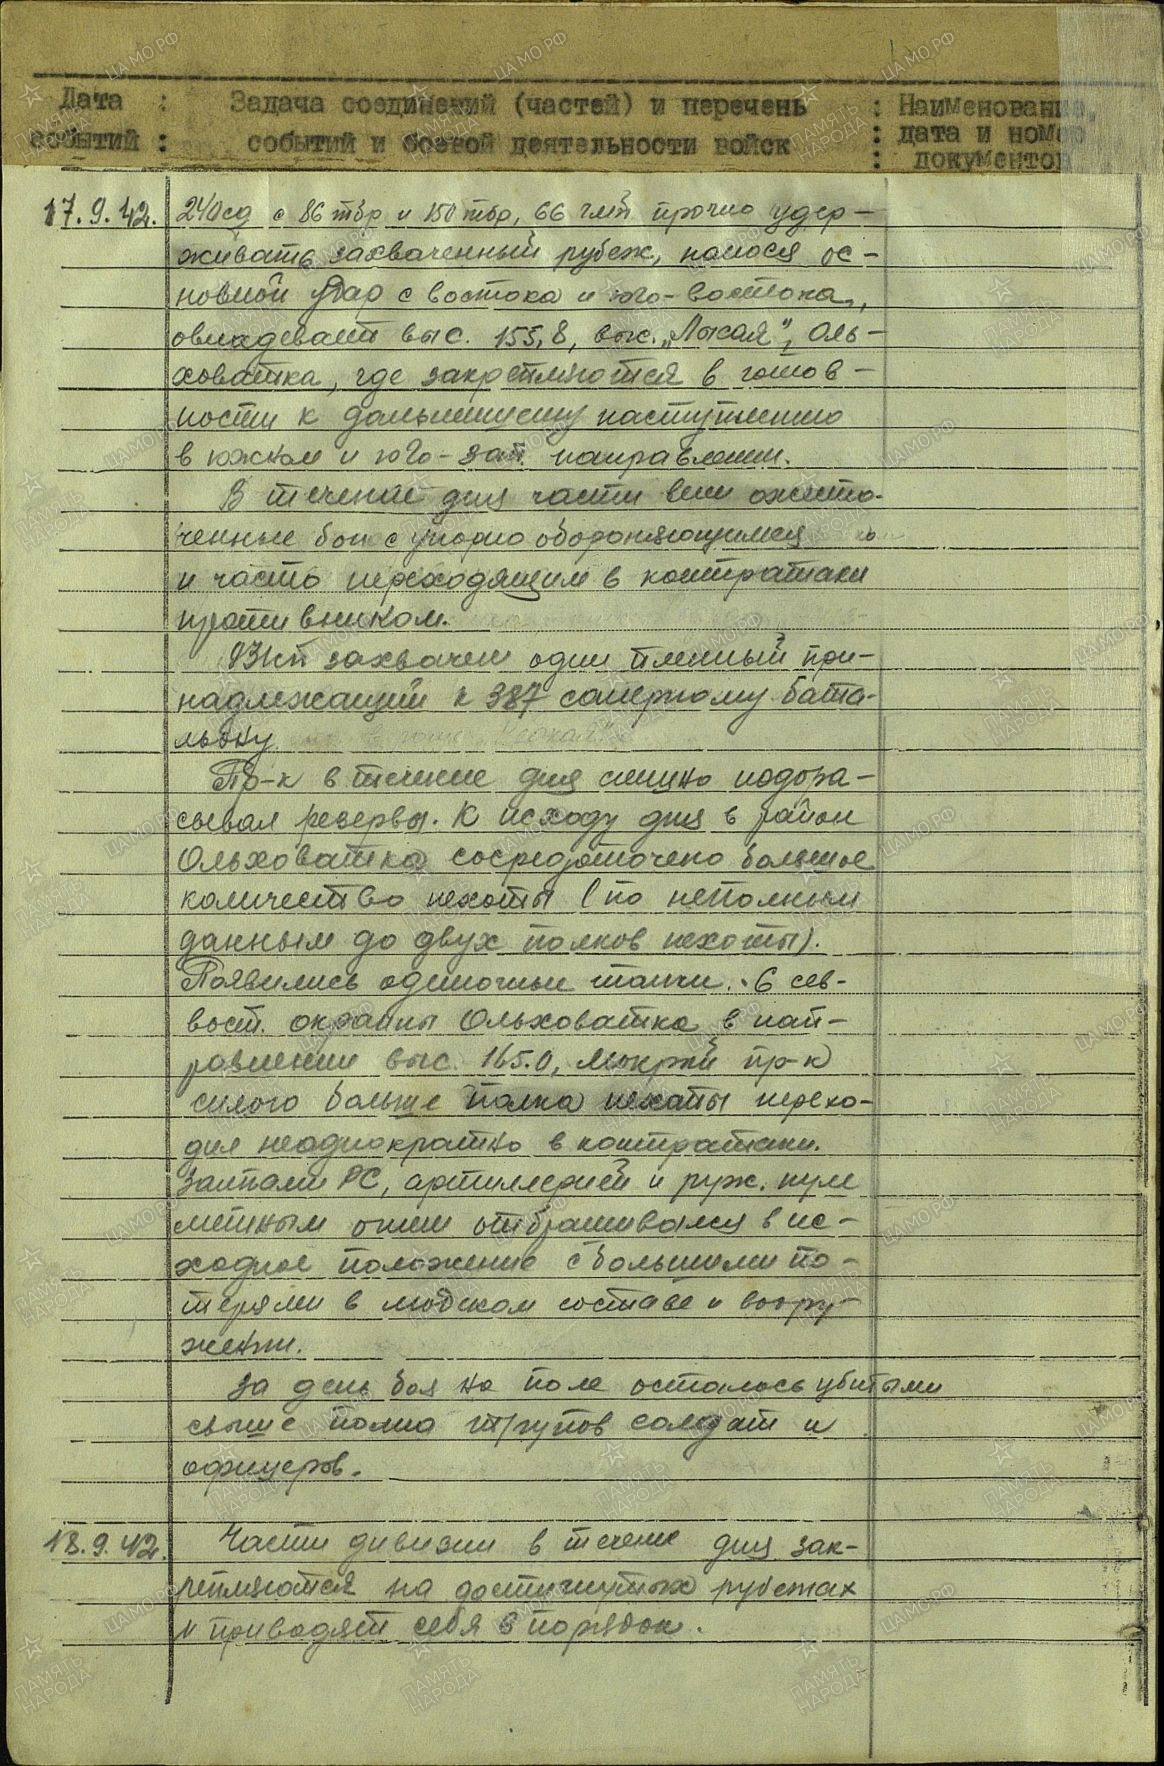 Дата : Задача соединений (частей) и перечень : Наименование,
событий : событий и боевой деятельности войск : дата и номер
: документов
17.9.42. 240сд с 86 тбр и 150 тбр, 66 гмп прочно удер-
живать захваченный рубеж, нанося ос-
новной удар с востока и юго-востока,
овладевает выс. 155,8, выс. „Лысая", Оль-
ховатка, где закрепляются в готов-
ности к дальнейшему наступлению
в южном и юго-зап. направлении.
В течение дня части вели ожесто-
ченные бои с упорно обороняющимся
и часто переходящим в контратаки
противником.
931сп захвачен один пленный при-
надлежащий к 387 саперному бата-
льону
Пр-к в течение дня спешно подбра-
сывал резервы. К исходу дня в район
Ольховатка сосредоточено большое
количество пехоты (по неполным
данным до двух полков пехоты).
Появились одиночные танки. С сев-
вост. окраины Ольховатка в нап-
равлении выс. 165.0, пр-к
силою больше полка пехоты перехо-
дил неоднократно в контратаки.
Залпами РС, артиллерией и руж. пуле
метным огнем отбрашивался в ис-
ходное положение с большими по-
терями в людском составе и воору-
жении.
За день боя на поле осталось убитыми
свыше полка трупов солдат и
офицеров.
18.9.42. Части дивизии в течение дня зак-
репляются на достигнутых рубежах
и приводят себя в порядок.